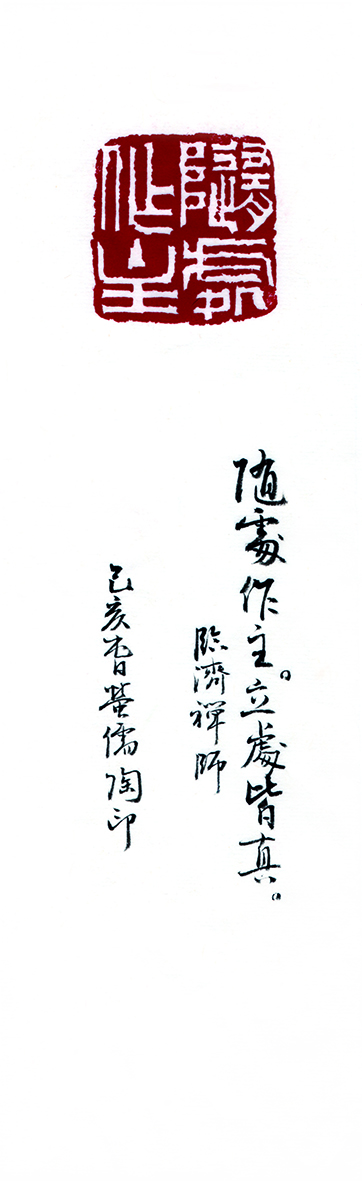 隨處作主
随處作主。立處皆真。
臨濟禪師
己亥春螢儒陶印